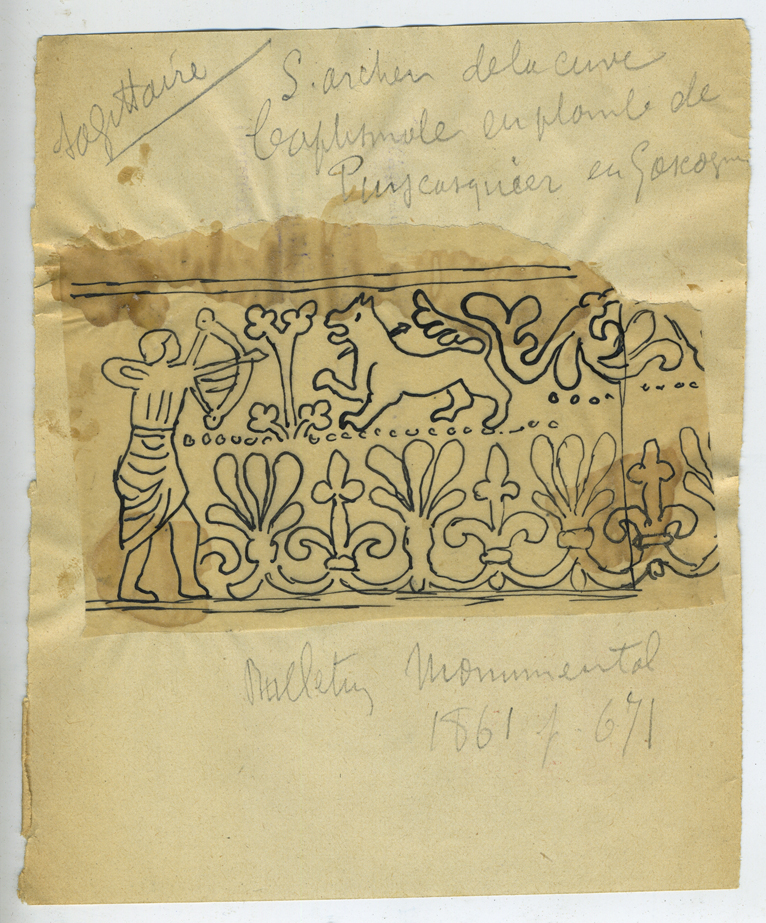 Sagittaire
S. archer de la cuve
baptismale en plomb de
Puycasquier en Gascogne
Bulletin Monumental
1861 p 671